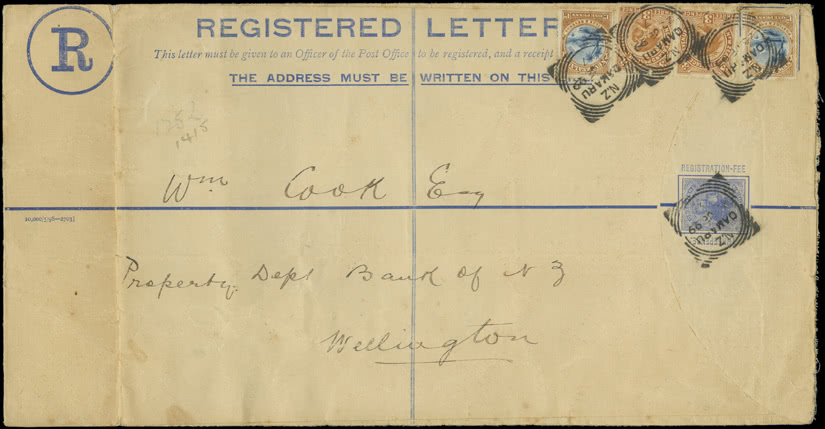 REGISTERED LETTER
R
This letter must be given to an Officer of the Post Office to be registered, and a receipt
THE ADDRESS MUST BE WRITTEN ON THIS
N.Z
OAMARU
1752
1415
REGISTRATION-FEE
Wm Cook Esq
N.Z
OAMARU
Property Dept Bank of N Z
Wellington